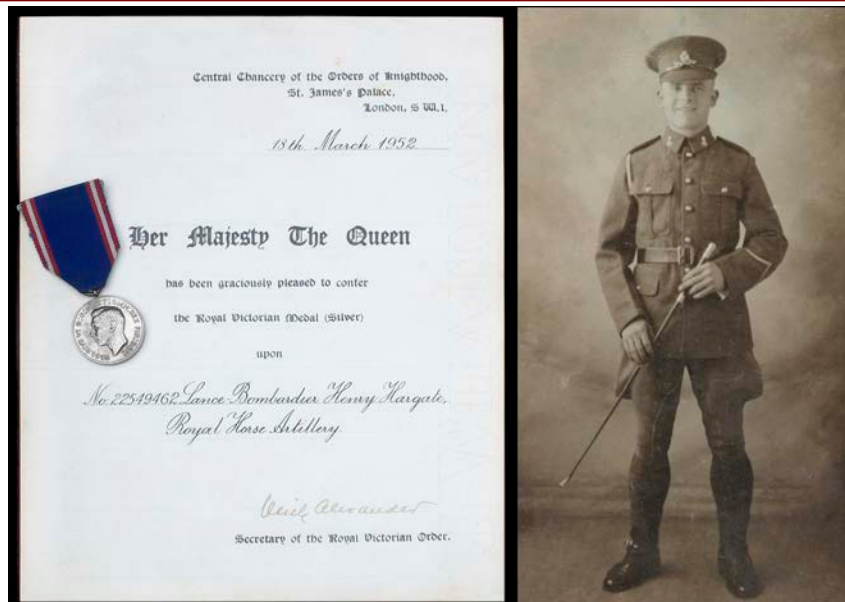 Central Chancery of the Orders of Knighthood,
St. James's Palace,
London, S.W.1.
18th March 1952
Her Majesty The Queen
has been graciously pleased to confer
the Royal Victorian Medal (Silver)
upon
No. 22549462 Lance-Bombardier Henry Hargate,
Royal Horse Artillery.
Ulick Alexander
Secretary of the Royal Victorian Order.